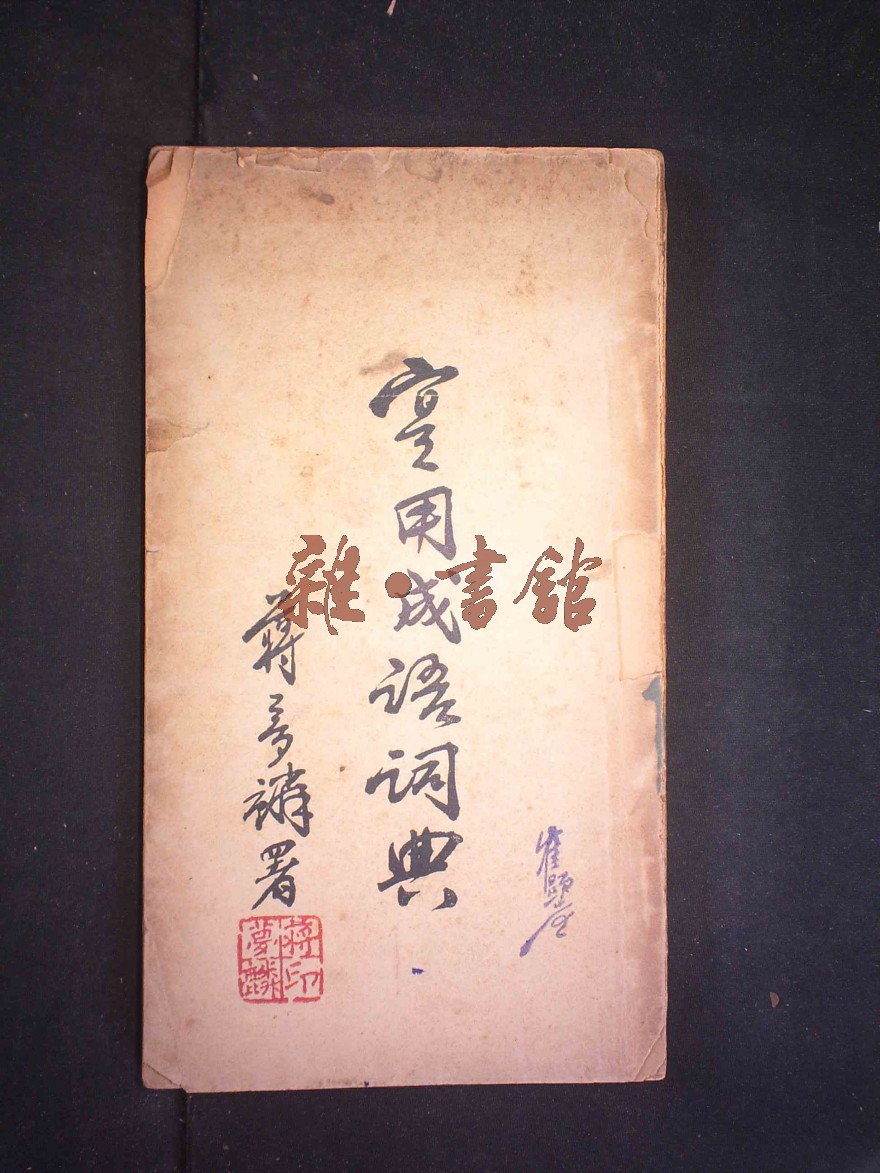 寔用成語詞典
蔣夢麟署
蔣印
夢麟
雜·書館